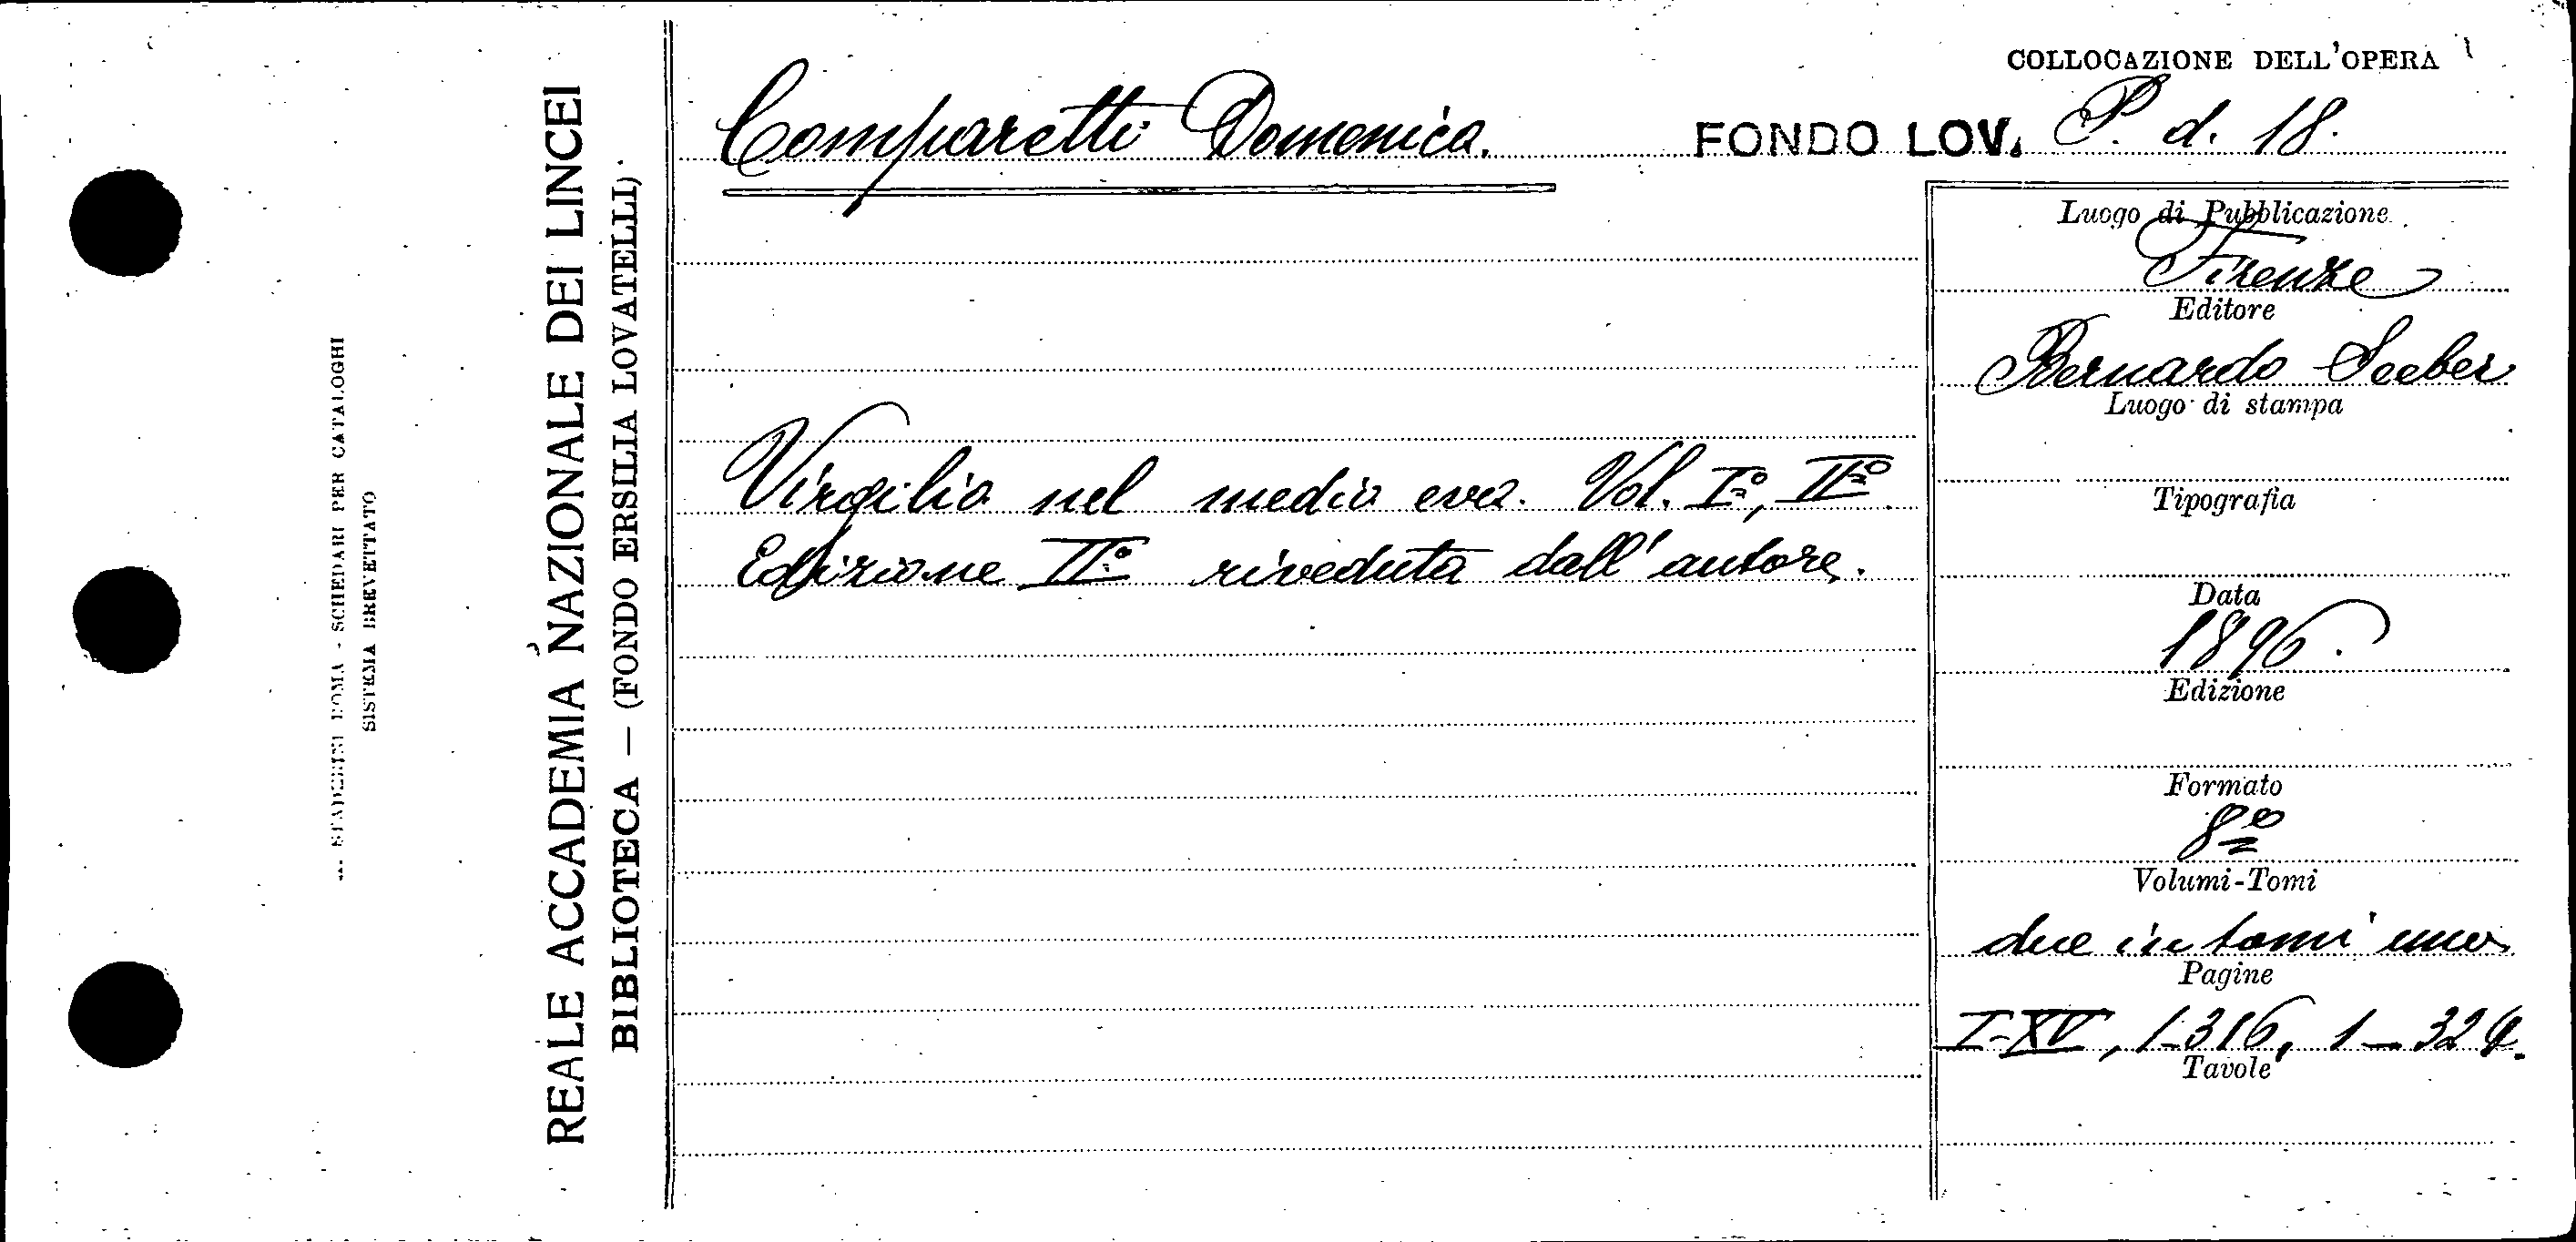 COLLOCAZIONE DELL'OPERA
Comparetti Domenico.
FONDO LOV. P. d. 18.
Virgilio nel medio evo. Vol. Iº, IIº.
Edizione IIº riveduta dall'autore.
Luogo di Pubblicazione
Firenze
Editore
Bernardo Seeber
Luogo di stampa
Tipografia
Data
1896.
Edizione
Formato
8º
Volumi-Tomi
due in tomi uno
Pagine
I-XV, 1-316, 1-324.
Tavole
REALE ACCADEMIA NAZIONALE DEI LINCEI
BIBLIOTECA — (FONDO ERSILIA LOVATELLI).
ROMA - SCHEDARI PER CATALOGHI
SISTEMA BREVETTATO